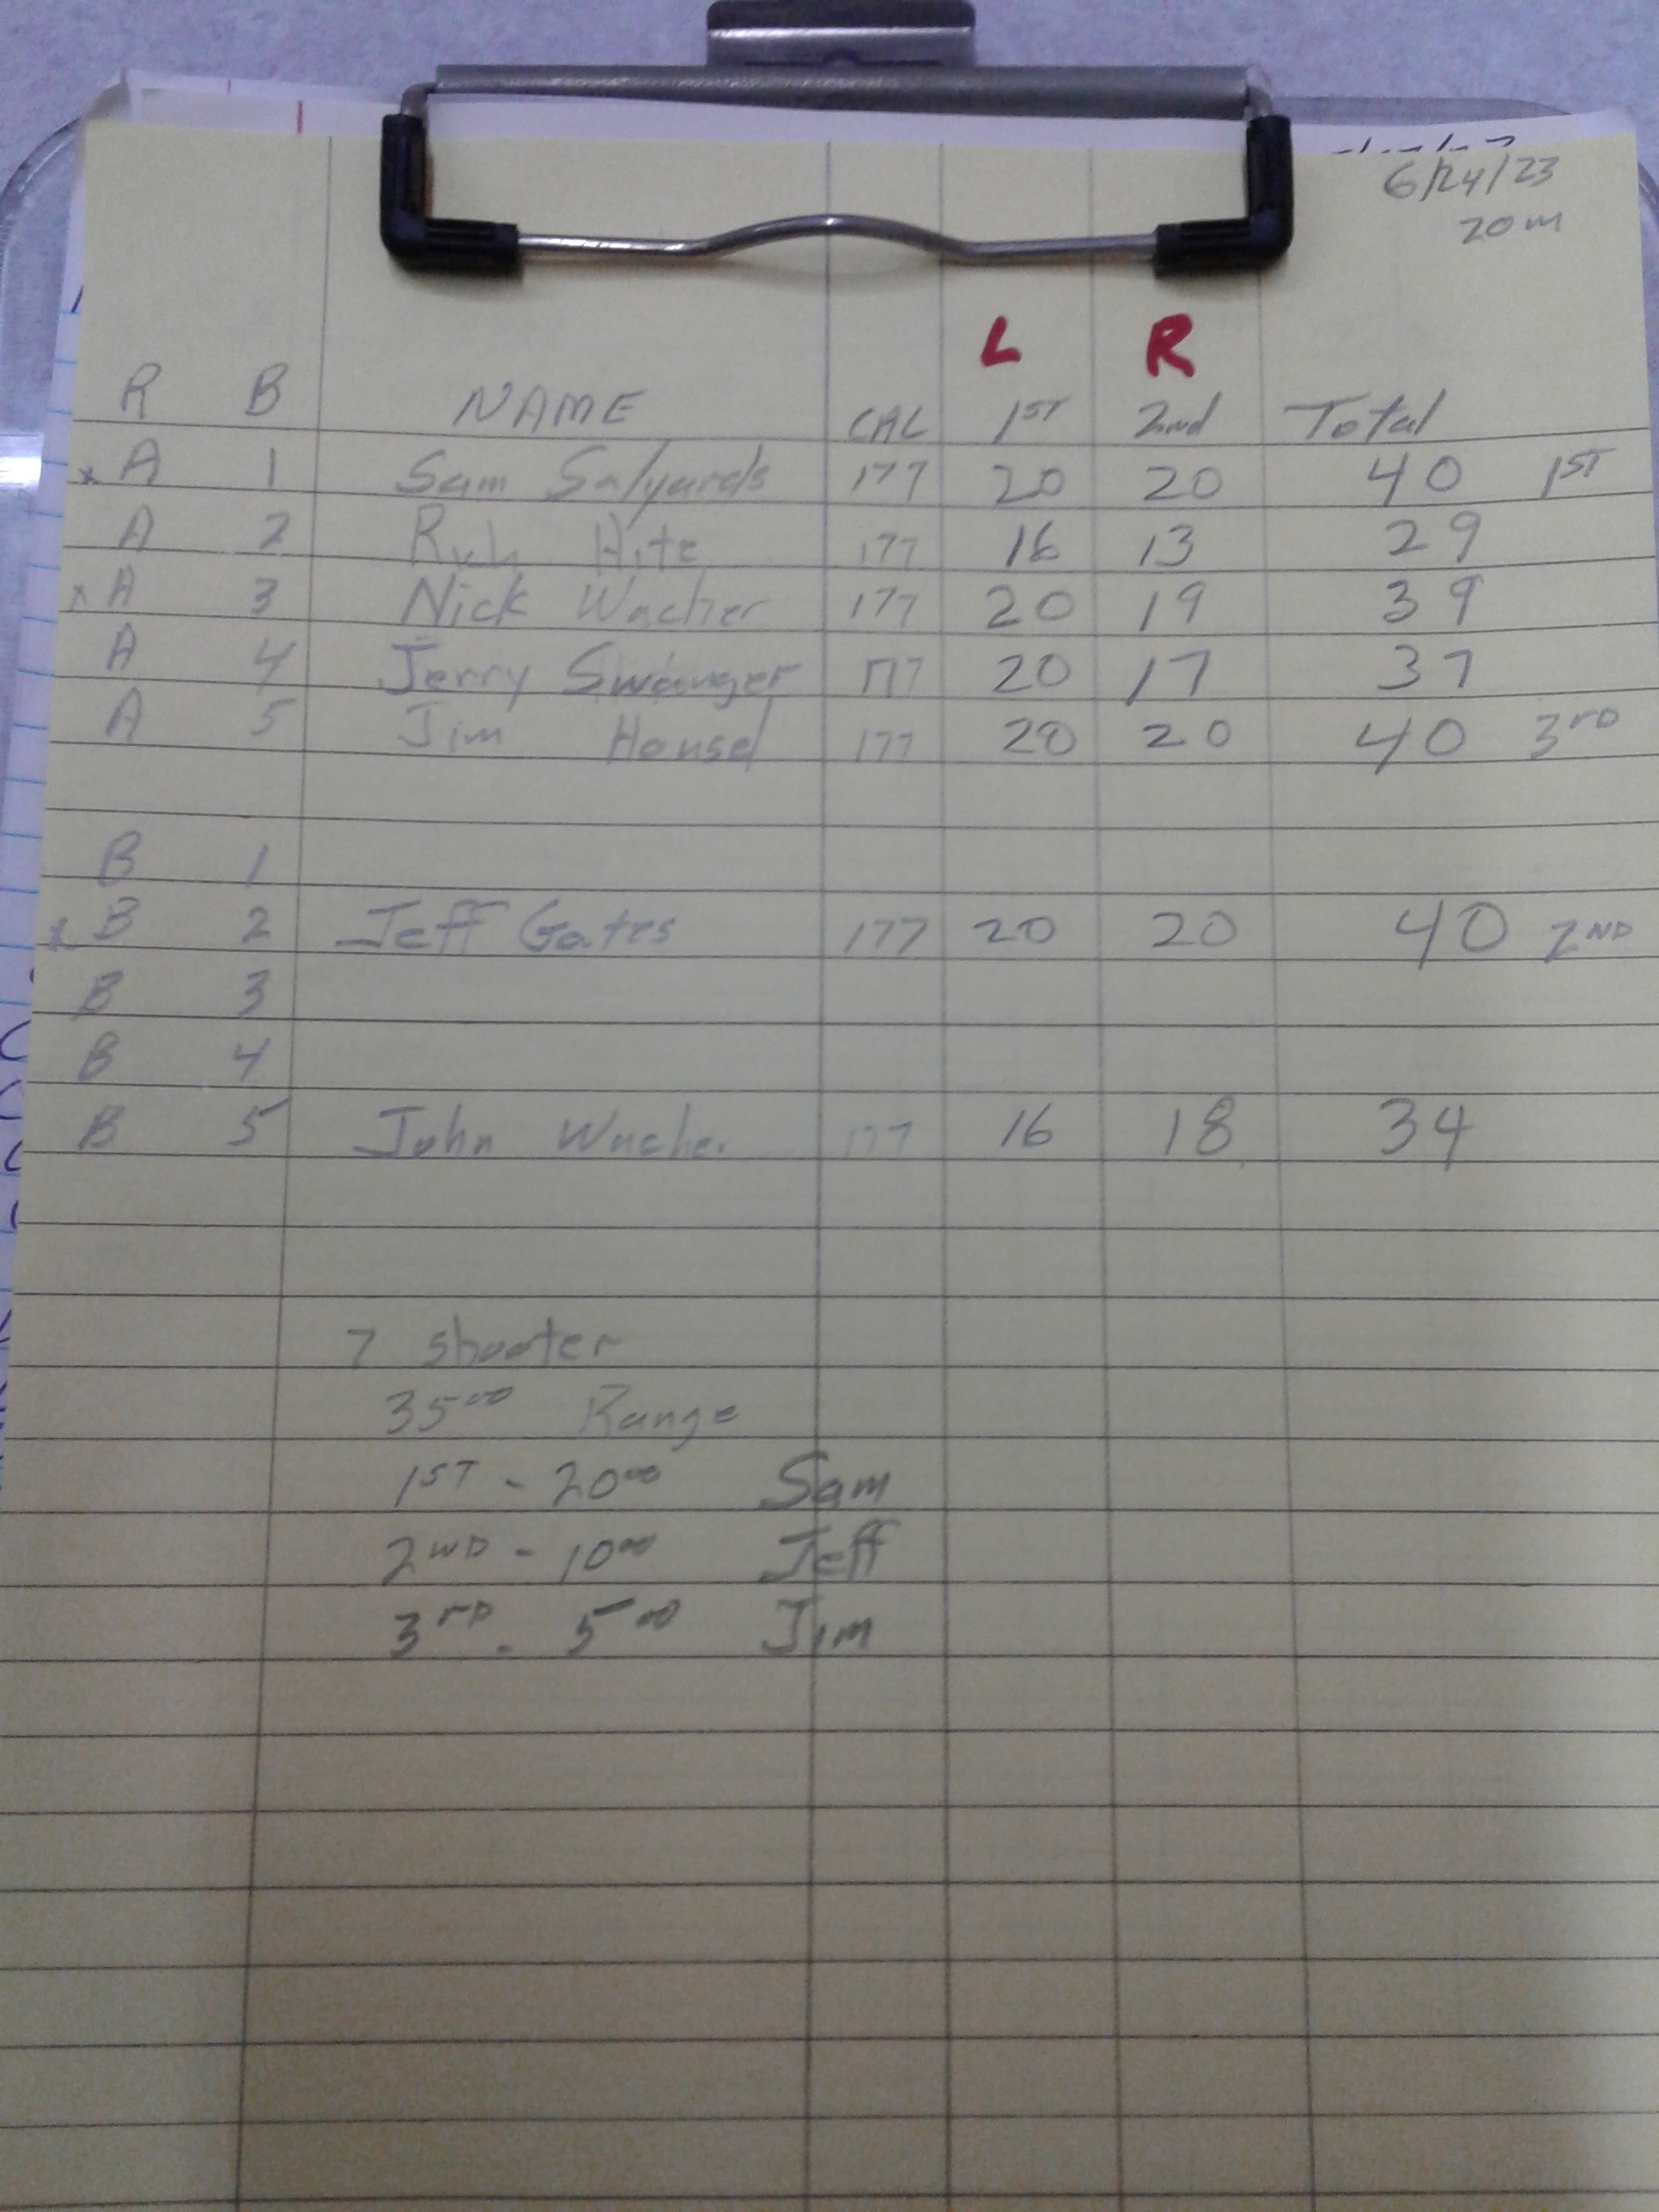 6/24/23
20m
L R
R B NAME CAL 1ST 2nd Total
x A 1 Sam Salyards 177 20 20 40 1ST
A 2 Hite 177 16 13 29
x A 3 Nick Wacher 177 20 19 39
A 4 Jerry Swanger 177 20 17 37
A 5 Jim Housel 177 20 20 40 3rd
B 1
x B 2 Jeff Gates 177 20 20 40 2ND
B 3
B 4
B 5 John Wacher 177 16 18 34
7 shooter
35⁰⁰ Range
1ST - 20⁰⁰ Sam
2ND - 10⁰⁰ Jeff
3rd - 5⁰⁰ Jim